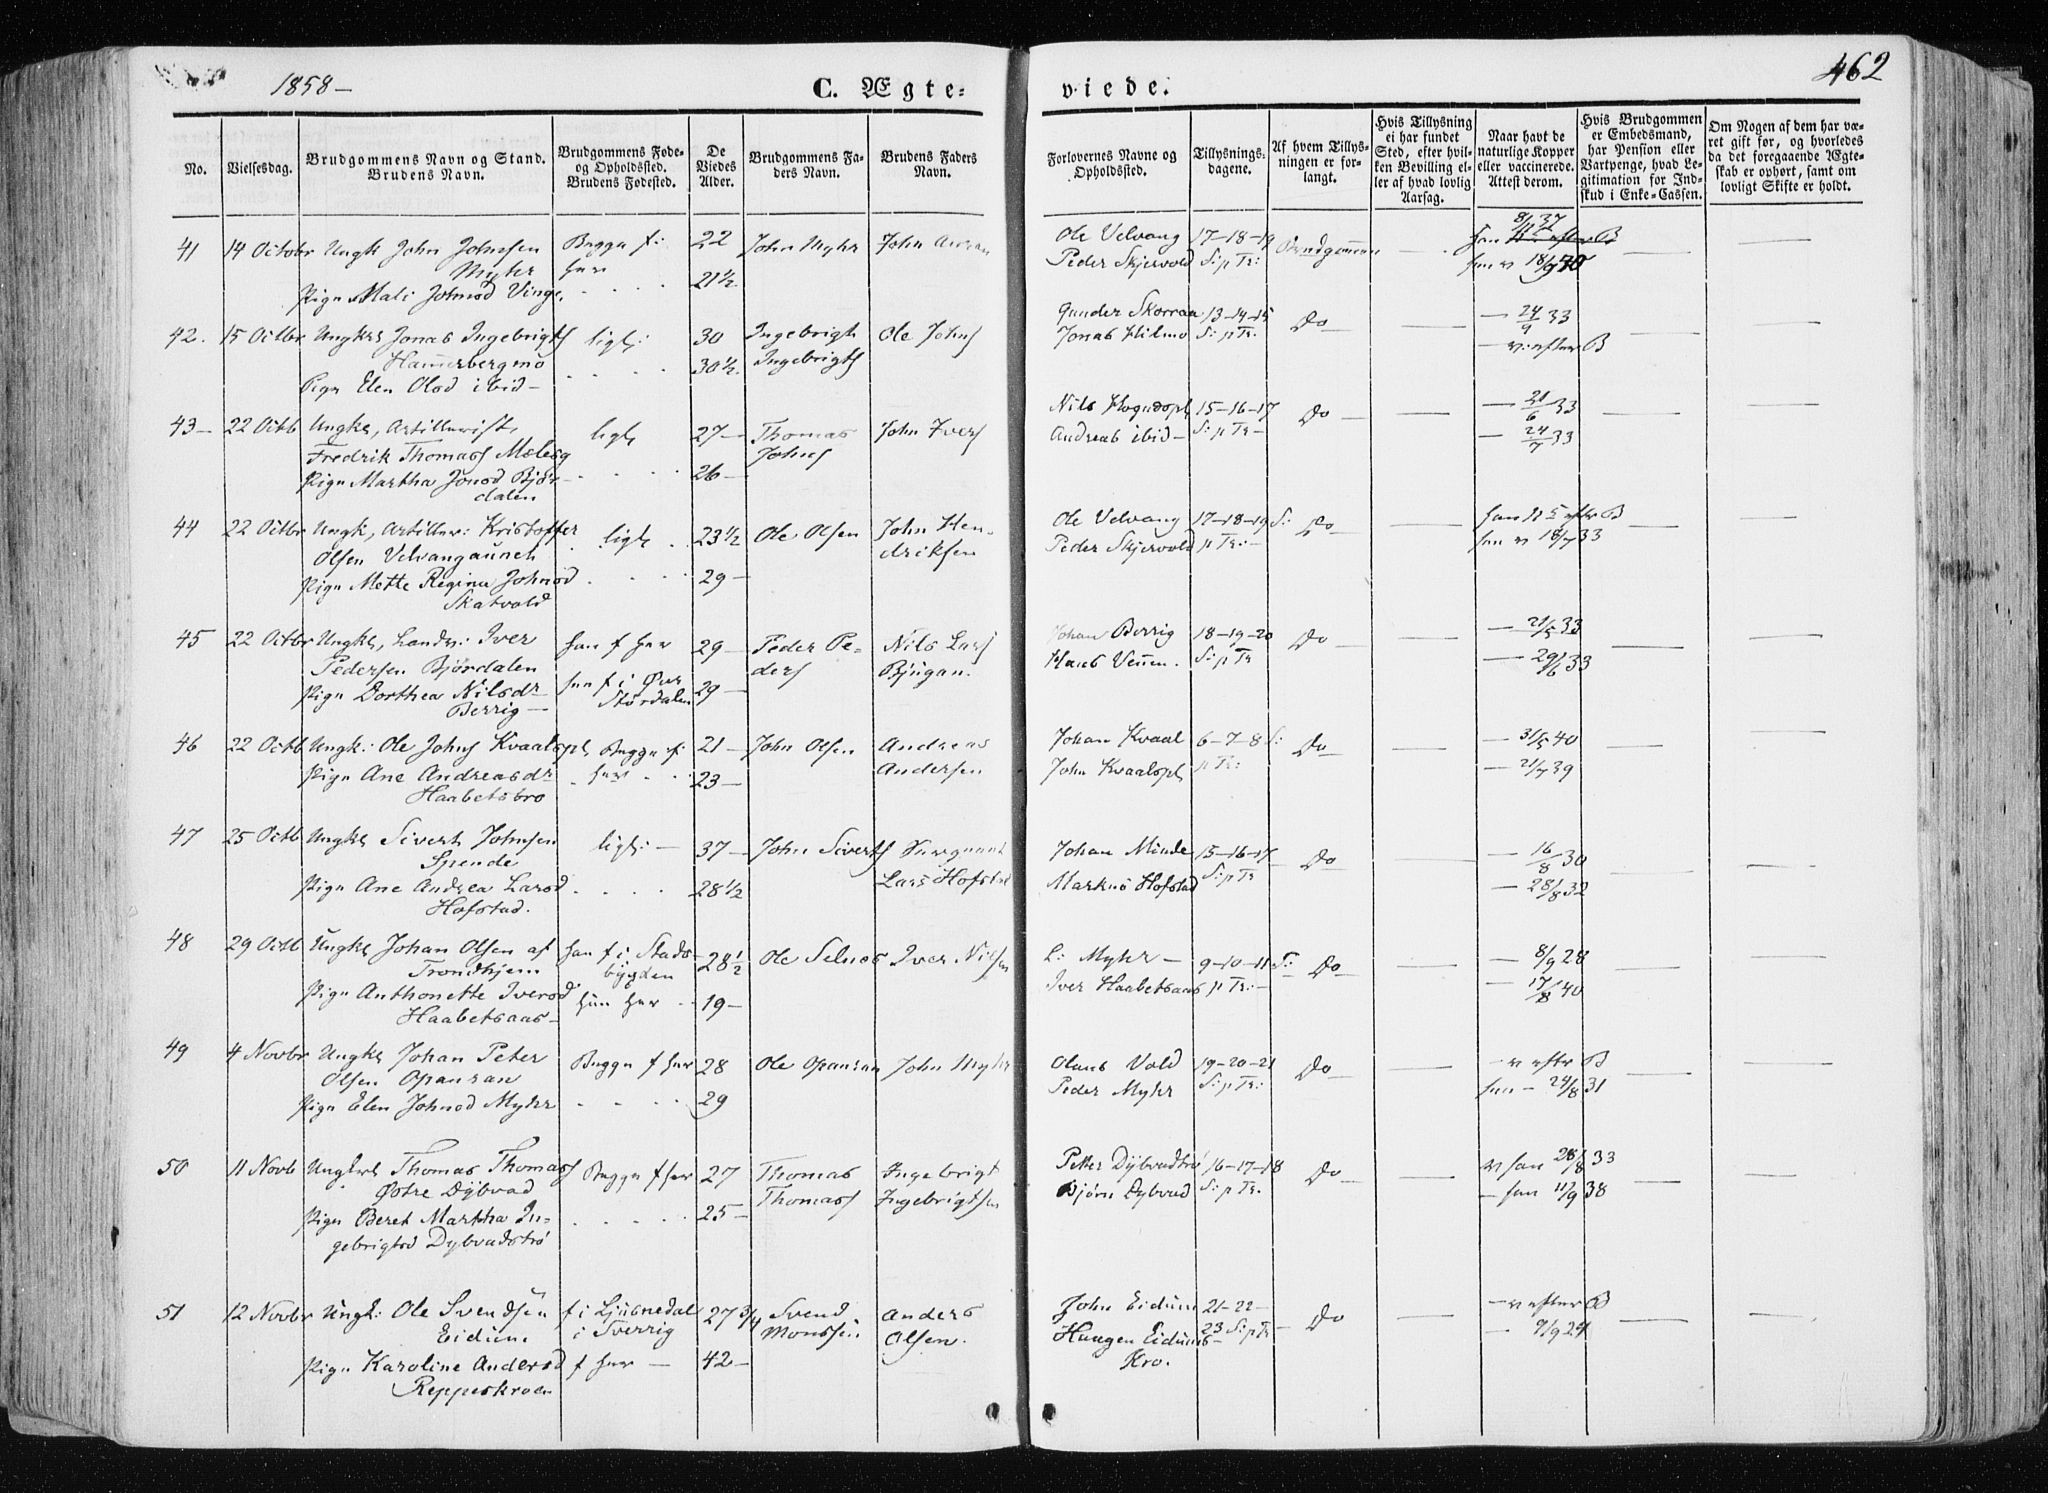 1858 –
C. Ægte=
viede.
462
No.
Vielsesdag.
Brudgommens Navn og Stand.
Brudens Navn.
Brudgommens Føde=
og Opholdssted.
Brudens Fødested.
De
Viedes
Alder.
Brudgommens Fa=
ders Navn.
Brudens Faders
Navn.
Forlovernes Navne og
Opholdssted.
Tillysnings=
dagene.
Af hvem Tillys=
ningen er for=
langt.
Hvis Tillysning
ei har fundet
Sted, efter hvil=
ken Bevilling el=
ler af hvad lovlig
Aarsag.
Naar havt de
naturlige Kopper
eller vaccinerede.
Attest derom.
Hvis Brudgommen
er Embedsmand,
har Pension eller
Vartpenge, hvad Le=
gitimation for Ind=
skud i Enke=Cassen.
Om Nogen af dem har væ=
ret gift før, og hvorledes
da det foregaaende Ægte=
skab er ophørt, samt om
lovligt Skifte er holdt.
41 14 Octobr Ungk John Johnsen
Myhr
Pign Mali Johnsd Vinge
Begge f:
her
22
21½
John Myhr
John
Ole Velvang
Peder Skjervold
17–18–19
S: p Tr:
Brudgommen
42. 15 Octbr Ungkrl Jonas Ingebrigts
Hammerbergmo
Pign Elen Olsd ibid –
ligl:
30
30½
Ingebrigt
Ingebrigts
Ole Johns
Gunder Skorraa
Jonas Hilmo
13–14–15
S: p Tr:
Do
– 24/9 33
– v: efter B
43 – 22 Octb Ungkl, Artillerist,
Fredrik Thomass
Pign Martha Jonsd Bjør
dalen
ligl
27 –
26 –
Thomas
Johns
John Ivers
Nils Hognespl
Andreas ibid –
15–16–17
S: p Tr –
Do
– 21/6 33
– 24/7 33
44 22 Octbr Ungk, Artiller: Kristoffer
Olsen Velvangaunet
Pign Mette Regina Johnsd
Skatvold
ligl
23½
29 –
Ole Olsen
John Hen
driksen
Ole Velvang
Peder Skjervold
17–18–19 S:
p Tr: –
Do
hun v 18/7 33
45 22 Octbr Ungkl, Landv: Iver
Pedersen Bjørdalen
Pign Dorthea Nilsdr
Berrig –
han f her
hun f i Øvr
Størdalen
29 –
29 –
Peder Pe=
ders
Nils Lars
Bjugan.
Johan Berrig
Hans Vennen.
18–19–20
S: p Tr
Do
– 21/5 33
– 29/6 33
46 22 Octb Ungk: Ole Johns Kvaalspl
Pign Ane Andreasdr
Haabetsbro
Begge f:
her
21 –
23 –
John Olsen
Andreas
Andersen
Johan Kvaal
John Kvaalspl
6–7–8 S:
p Tr:
Do
– 31/5 40
– 21/7 39
47 25 Octb Ungkl Sivert Johnsen
Spende
Pign Ane Andrea Larsd
Hofstad.
ligl: –
37 –
28½
John Siverts
Lars Hofstad
Johan Minde
Markus Hofstad
15–16–17
S: p Tr
Do
– 16/8 30
– 28/8 32
48 29 Octb Ungkl Johan Olsen af
Trondhjem
Pign Anthonette Iversd
Haabetsaas –
han f i Stads
bygden
hun her
28½
19 –
Ole Selnes
Iver Nilsen
L: Myhr –
Iver Haabetsaas
9–10–11 S:
p Tr: –
Do
– 8/9 28
– 17/8 40
49 4 Novbr Ungkl Johan Peter
Olsen Opauran
Pign Elen Johnsd Myhr
Begge f her
28
29
Ole Opauran
John Myhr
Olaus Vold
Peder Myhr
19–20–21
S: p Tr:
Do
– v efter B
hun – 24/8 31
50 11 Novb Ungkrl Thomas Thomass
Østre Dybvad
Pign Beret Martha In=
gebrigtsd Dybvadstrø
Begge f her
27
25 –
Thomas
Thomass
Ingebrigt
Ingebrigtsen
Peter Dybvadstrø
Bjørn Dybvad
16–17–18
S: p Tr.
Do
v han 28/8 33
– hun 11/9 38
51 12 Novbr Ungk: Ole Svendsen
Eidum
Pign Karoline Andersd
Reppeskroen
f i Ljusnedal
i Sverrig
f her –
27¾
42 –
Svend
Monssen
Anders
Olsen.
John Eidum
Haagen Eidums
Kro.
21–22–
23 S: p Tr
Do
– v efter B
– 9/9 24